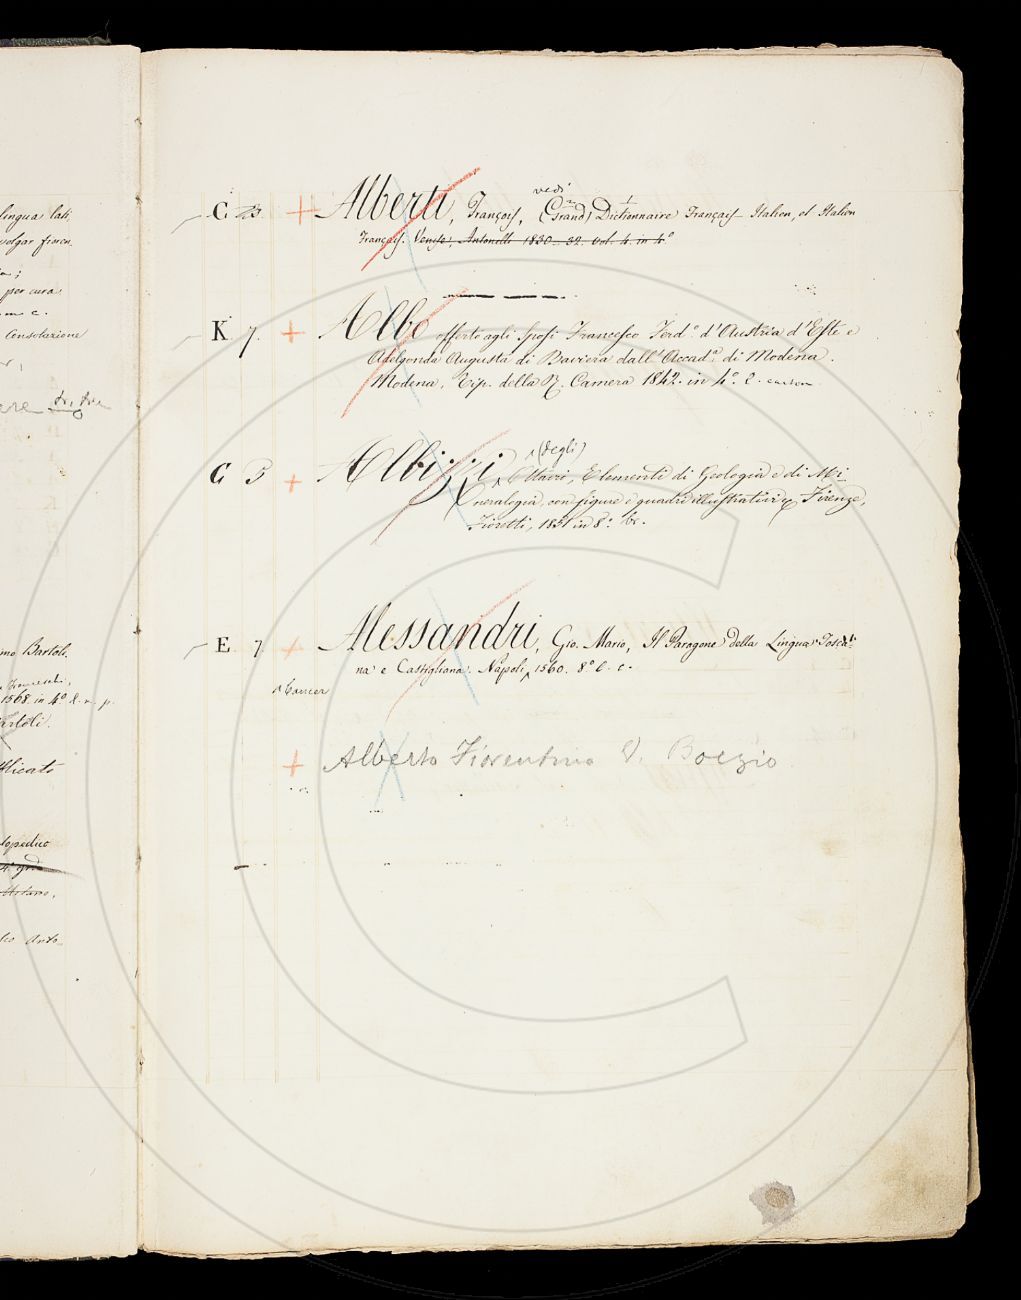 lingua lati
volgar fioren.
per cura
Consolazione
mo Bartoli.
1568. in 4º
Bartoli.
blicato
C 23 + Alberti, François, (Grand) Dictionnaire Français Italien, et Italien
vedi
Français. Venise, Antonelli 1830-32. vol. 4. in 4º
K 7. + Albo offerto agli Sposi Francesco Ferd.º d'Austria d'Este e
Adelgonda Augusta di Baviera dall'Accad.ª di Modena.
Modena, Tip. della R. Camera 1842. in 4º.
(degli)
C 5 + Albizzi, Ottavi, Elementi di Geologia e di Mi-
neralogia, con figure e quadri illustrativi Firenze,
Fioretti, 1851 in 8º. br.
E 7 + Alessandri, Gio. Mario, Il Paragone della Lingua Tosca-
na e Castigliana. Napoli, 1560. 8º
+ Alberto Fiorentino V. Boezio